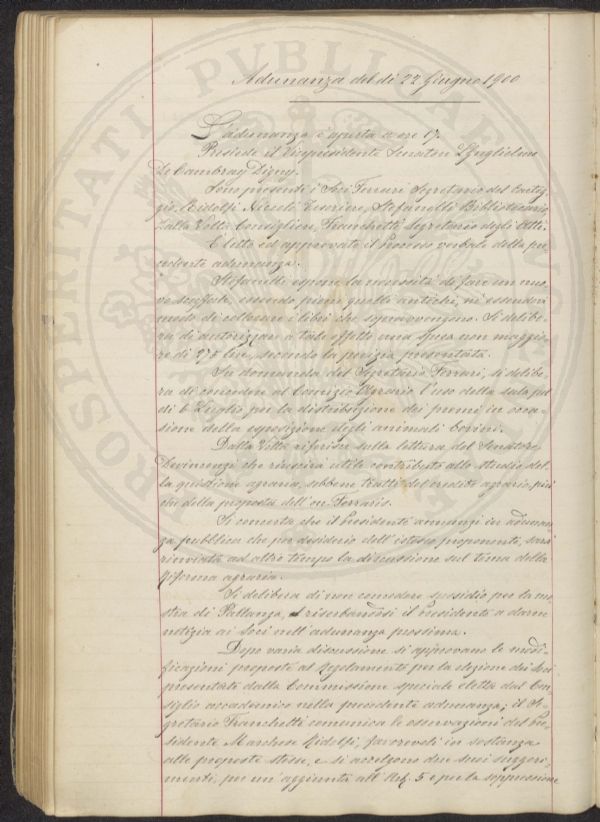 Adunanza del dì 22 Giugno 1900
L'adunanza è aperta a ore 17.
Presiede il Vicepresidente Senatore Guglielmo
De Cambray Digny.
Sono presenti i Soci Ferrari Segretario del Carteg-
gio, Ridolfi Niccolò Tesoriere, Stefanelli Bibliotecario,
Dalla Volta Consigliere, Franchetti Segretario degli Atti.
È letto ed approvato il Processo verbale della pre-
cedente adunanza.
Stefanelli espone la necessità di fare un nuo-
vo scaffale, essendo pieni quelli antichi, nè essendovi
modo di collocare i libri che sopravvengono. Si delibe-
ra di autorizzare a tale effetto una spesa non maggio-
re di 275 lire, secondo la perizia presentata.
Su domanda del Segretario Ferrari, si delibe-
ra di concedere al Comizio Agrario l'uso della sala pel
dì 6 Luglio per la distribuzione dei premi in occa-
sione della esposizione degli animali bovini.
Dalla Volta riferisce sulla lettura del Senatore
Devincenzi che riuscirà utile contributo allo studio del-
la quistione agraria, sebbene tratti del credito agrario, più
che della proposta dell'on. Ferraris.
Si concerta che il Presidente annunzi in adunan-
za pubblica che per desiderio dell'istesso proponente, sarà
rinviata ad altro tempo la discussione sul tema della
riforma agraria.
Si delibera di non concedere sussidio per la mo-
stra di Pallanza, riserbandosi il Presidente a darne
notizia ai Soci nell'adunanza prossima.
Dopo varia discussione si approvano le modi-
ficazioni proposte al Regolamento per la elezione dei Soci
presentata dalla Commissione speciale eletta dal Con-
siglio accademico nella precedente adunanza; il Se-
gretario Franchetti comunica le osservazioni del Pre-
sidente Marchese Ridolfi, favorevoli in sostanza
alle proposte stesse, e si accolgono due suoi suggeri-
menti, per un'aggiunta all'Art. 5 e per la soppressione
PROSPERITATI PUBLICAE